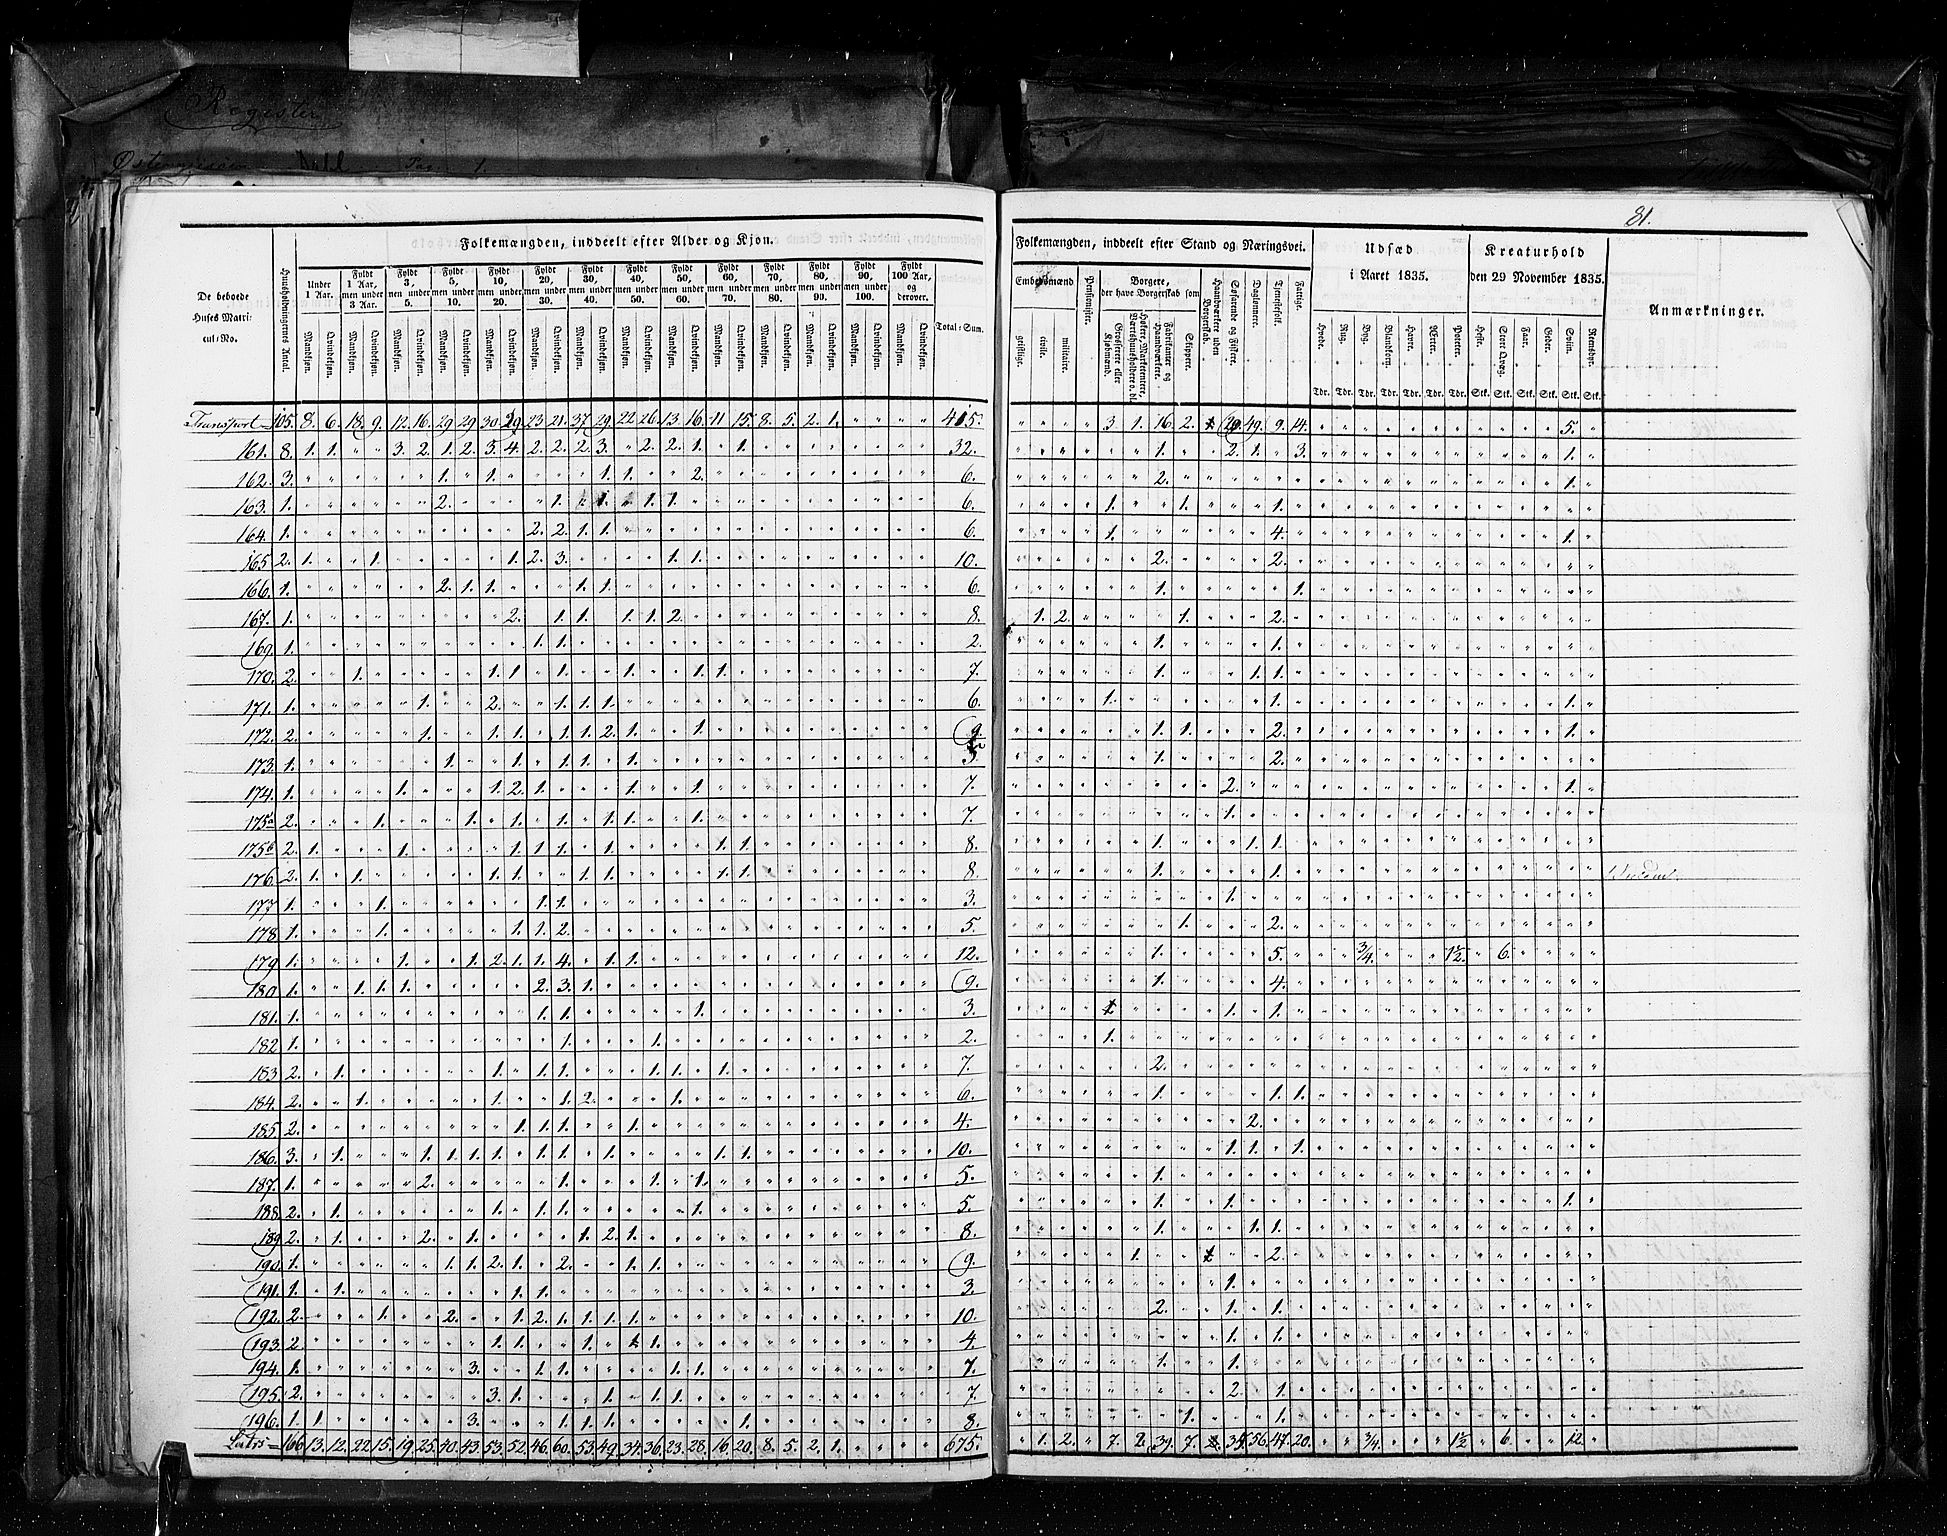 Register
81.
Folkemængden, inddeelt efter Alder og Kjøn.
Folkemængden, inddeelt efter Stand og Næringsvei.
Udsæd
i Aaret 1835.
Kreaturhold
den 29 November 1835.
Anmærkninger.
De beboede
Huses Matri-
cul-No.
Huusholdningernes Antal.
Under
1 Aar.
Fyldt
1 Aar,
men under
3 Aar.
Fyldt
3,
men under
5.
Fyldt
5,
men under
10.
Fyldt
10,
men under
20.
Fyldt
20,
men under
30.
Fyldt
30,
men under
40.
Fyldt
40,
men under
50.
Fyldt
50,
men under
60.
Fyldt
60,
men under
70.
Fyldt
70,
men under
80.
Fyldt
80,
men under
90.
Fyldt
90,
men under
100.
Fyldt
100 Aar,
og
derover.
Total-Sum.
Mandkjøn. Qvindekjøn.
Embedsmænd
geistlige. civile. militaire.
Pensionister.
Borgere,
der have Borgerskab som
Grosserere eller Kjøbmænd.
Høkere, Marketentere, Værtshuusholdere o. dl.
Fabrikanter og Haandværkere.
Skippere.
Haandværkere uden Borgerskab.
Søfarende og Fiskere.
Daglønnere.
Tjenestefolk.
Fattige.
Hvede. Rug. Byg. Blandkorn. Havre. Ærter. Poteter.
Heste. Stort Qvæg. Faar. Geder. Sviin. Rensdyr.
Tdr. Tdr. Tdr. Tdr. Tdr. Tdr. Tdr. Stk. Stk. Stk. Stk. Stk. Stk.
Transport 105. 8. 6. 18. 9. 12. 16. 29. 29. 30. 29. 23. 21. 37. 29. 22. 26. 13. 16. 11. 15. 8. 5. 2. 1. " " " " 415. " " " " 3. 1. 16. 2. 29. 49. 9. 14. 5.
161. 8. 1. 1. " " 3. 2. 1. 2. 3. 4. 2. 2. 2. 3. " 2. 2. 1. " 1. 32. 1. 2. 1. 3. 1.
162. 3. 1. 1. 1. 1. 2. 6. 2. 1.
163. 1. 2. 1. 1. 1. 1. 6. 1. 1. 1.
164. 1. 2. 2. 1. 1. 6. 1. 4. 1.
165. 2. 1. 1. 1. 2. 3. 1. 1. 10. 2. 2.
166. 1. 2. 1. 1. 1. 1. 6. 1. 1.
167. 1. 2. 1. 1. 1. 1. 2. 8. 1. 2. 1. 2.
169. 1. 1. 1. 2. 1. 1.
170. 2. 1. 1. 1 1. 1. 1. 1. 7. 1. 1. 1.
171. 1. 1. 2. 1. 1. 1. 6. 1. 1. 1.
172. 2. 1. 1. 1. 1. 1. 2. 1. 1. 9. 1. 1. 2. 1.
173. 1. 1. 1. 1. 1. 1. 1. 2.
174. 1. 1. 1. 2. 1. 1. 1. 7. 2. 1.
175a 2. 1. 1. 1. 1. 1. 1. 1. 7. 1.
175b 2. 1. 1. 1. 1. 1. 1. 1. 1. 8. 1. 1. 1.
176. 2. 1. 1. 1. 1. 1. 1. 1. 1. 8. 1. 1.
177 1. 1. 1. 1. 3. 1.
178 1. 1. 1. 1. 2. 5. 1. 2.
179 1. 1. 1. 2. 1. 1. 4. 1. 1. 12. 1. 5. 3/4. 1½. 6.
180 1. 1. 1. 1. 2. 3. 1. 9. 1. 4.
181. 1. 1. 1. 1. 3. 1. 1.
182 1. 1. 1. 2. 1.
183 2. 1. 1. 1. 1. 1. 1. 1. 7. 2.
184. 2. 1. 1. 1. 2. 1. 6. 1. 1. 1.
185. 2. 1. 1. 1. 1. 4. 2.
186. 3. 1. 1. 1. 1. 1. 1. 1. 1. 1. 1. 10. 1. 1. 1.
187. 1. 2. 1. 1. 1. 5. 1.
188. 2. 1. 1. 1. 1. 1. 5. 1. 1. 1.
189 2. 1. 2. 1. 1. 2. 1. 8. 1. 1. 1.
190. 1. 1. 1. 2. 1. 2. 1. 1. 9. 1. 2.
191. 1. 1. 1. 1. 3. 1.
192. 2. 1. 2. 1. 2. 1. 1. 1. 1. 10. 2. 1. 1.
193. 2 1. 1. 1. 1. 4. 1. 1.
194. 1. 3. 1. 1. 1. 1. 7. 1. 1.
195. 2. 3. 1. 1. 1. 1. 7. 2. 1.
196. 1. 1. 3. 1. 1. 1. 1. 8. 1. 1.
Latus 166 13. 12. 22. 15. 19. 25. 40. 43. 53. 52. 46. 60. 53. 49. 34. 36. 23. 28. 16. 20. 8. 5. 2. 1. 675. 1. 2. 7. 2. 39. 7. 35. 56. 47. 20. 3/4. 1½ 6. 12.